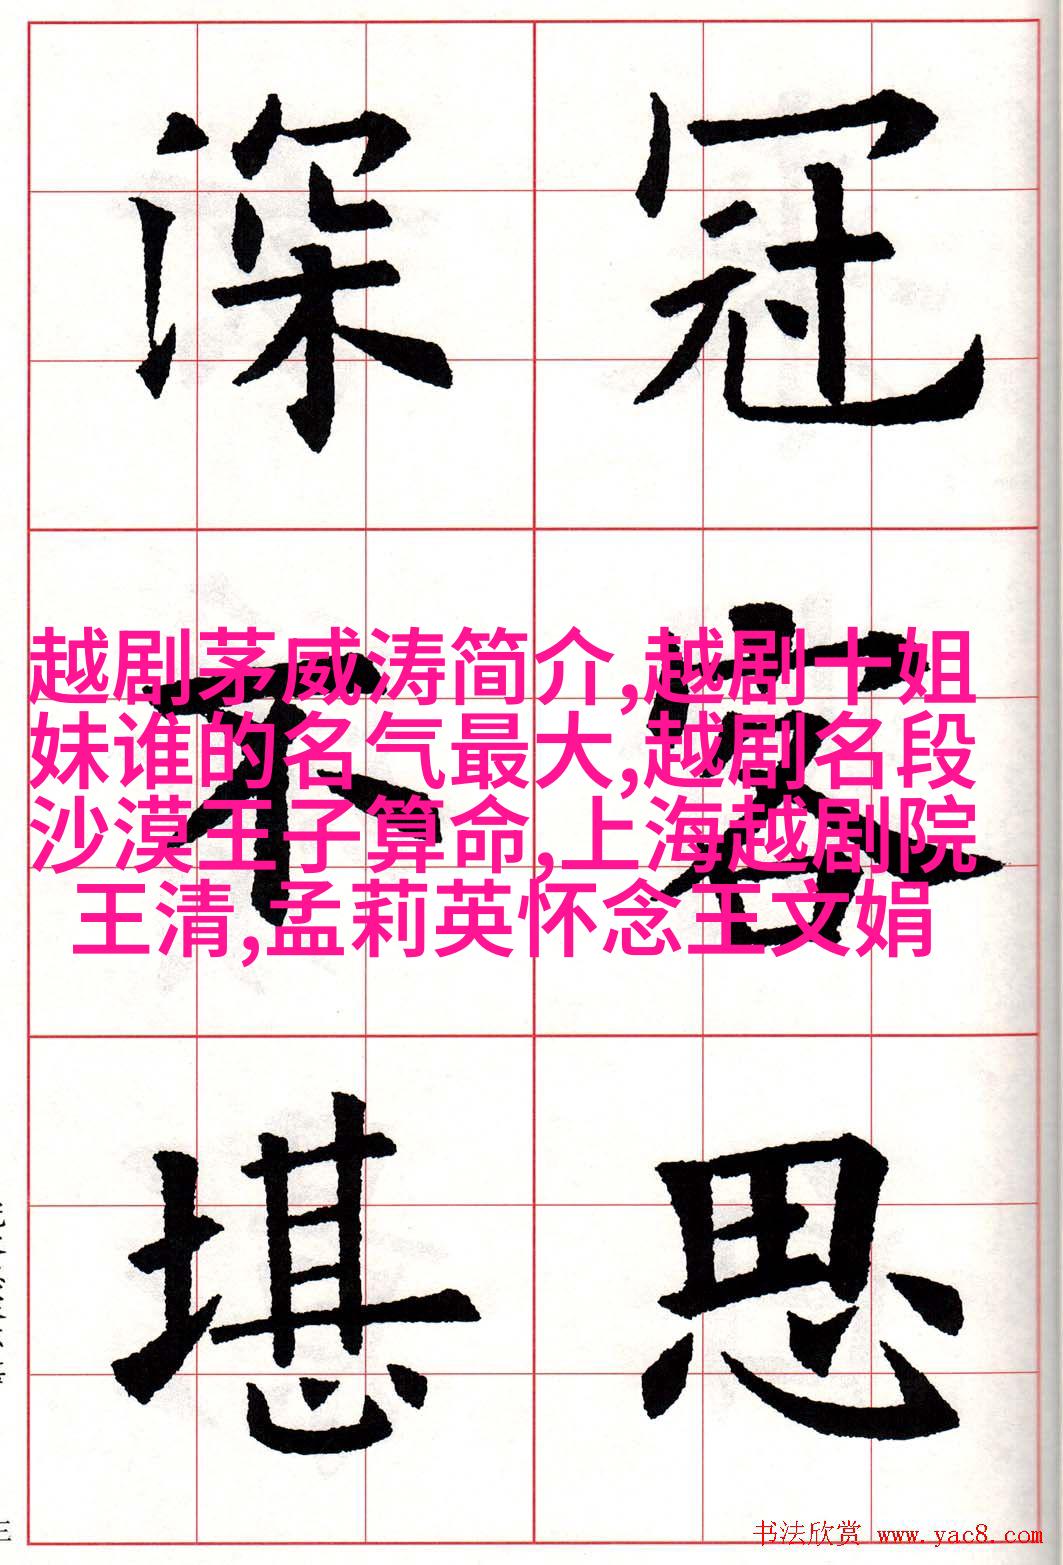 冠 客 思
深 不 堪
越剧茅威涛简介,越剧十姐
妹谁的名气最大,越剧名段
沙漠王子算命,上海越剧院
王清,孟莉英怀念王文娟
书法欣赏 www.yac8.com
三